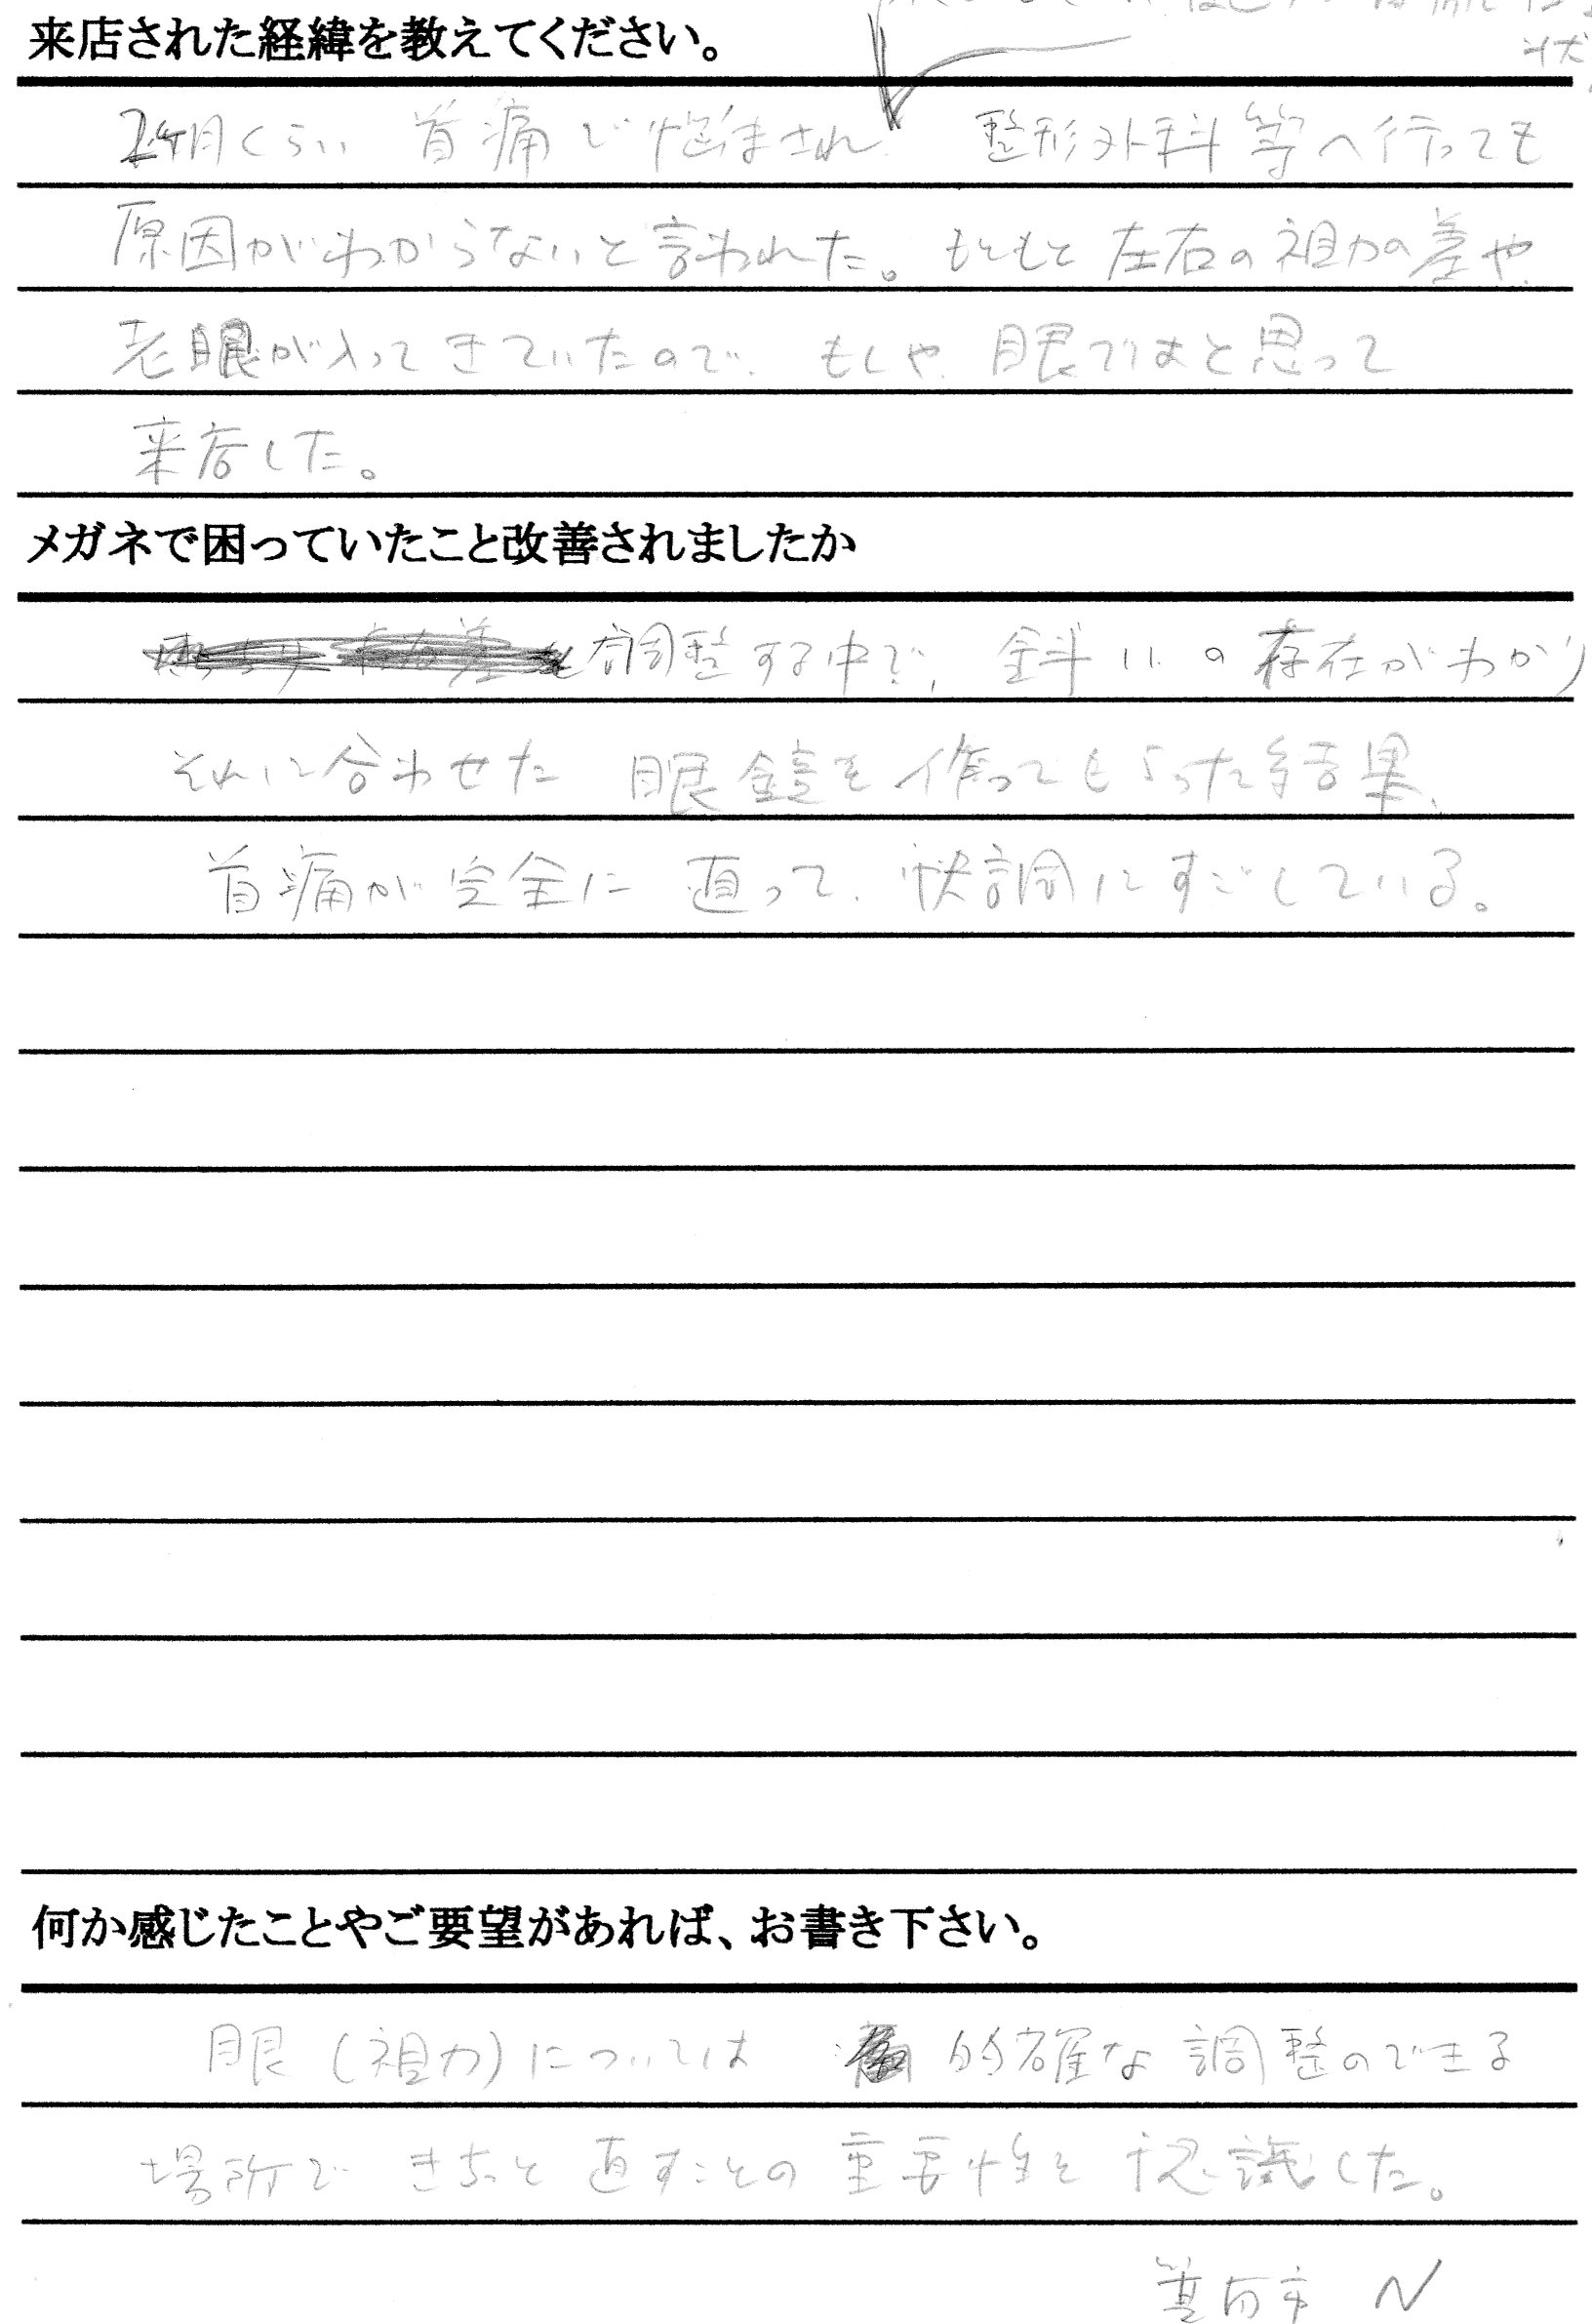 来店された経緯を教えてください。
状
2ヶ月くらい 首痛で悩まされ 整形外科等へ行っても
原因がわからないと言われた。もともと左右の視力の差や
老眼が入ってきていたので、もしや、眼ではと思って
来店した。
メガネで困っていたこと改善されましたか
調整する中で、斜いの存在がわかり
それに合わせた 眼鏡を作ってもらった結果、
首痛が完全に直って、快調にすごしている。
何か感じたことやご要望があれば、お書き下さい。
眼(視力)については 的確な調整のできる
場所で きちっと直すことの重要性を認識した。
箕面市 N